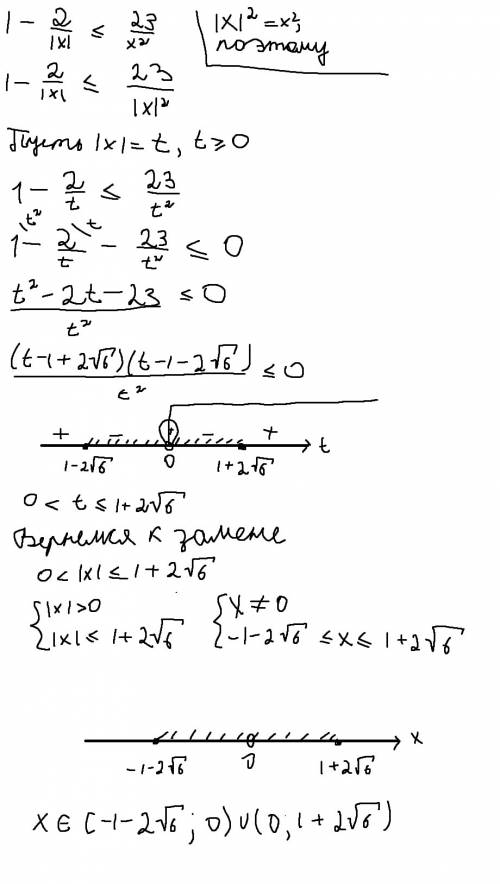 1 - 2/|x| ≤ 23/x²
|x|² = x²,
поэтому
1 - 2/|x| ≤ 23/|x|²
Пусть |x| = t, t ≥ 0
1 - 2/t ≤ 23/t²
1\t² - 2/t\t - 23/t² ≤ 0
(t² - 2t - 23)/t² ≤ 0
(t-1+2√6)(t-1-2√6)/t² ≤ 0
+ - - + t
1-2√6 0 1+2√6
0 < t ≤ 1+2√6
Вернемся к замене
0 < |x| ≤ 1+2√6
{ |x| > 0 { x ≠ 0
{ |x| ≤ 1+2√6 { -1-2√6 ≤ x ≤ 1+2√6
x
-1-2√6 0 1+2√6
x ∈ [-1-2√6; 0) ∪ (0; 1+2√6)